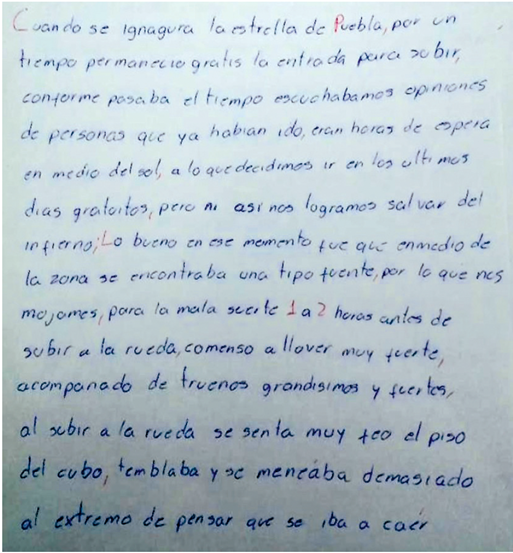 Cuando se ignagura la estrella de Puebla, por un
tiempo permanecio gratis la entrada para subir,
conforme pasaba el tiempo escuchabamos opiniones
de personas que ya habian ido, eran horas de espera
en medio del sol, a lo que decidimos ir en los ultimos
dias gratuitos, pero ni asi nos logramos salvar del
infierno; Lo bueno en ese momento fue que enmedio de
la zona se encontraba una tipo fuente, por lo que nos
mojames, para la mala suerte 1 a 2 horas antes de
subir a la rueda, comenso a llover muy fuerte,
acompanado de truenos grandisimos y fuertes,
al subir a la rueda se senta muy feo el piso
del cubo, temblaba y se meneába demasiado
al extremo de pensar que se iba a caér